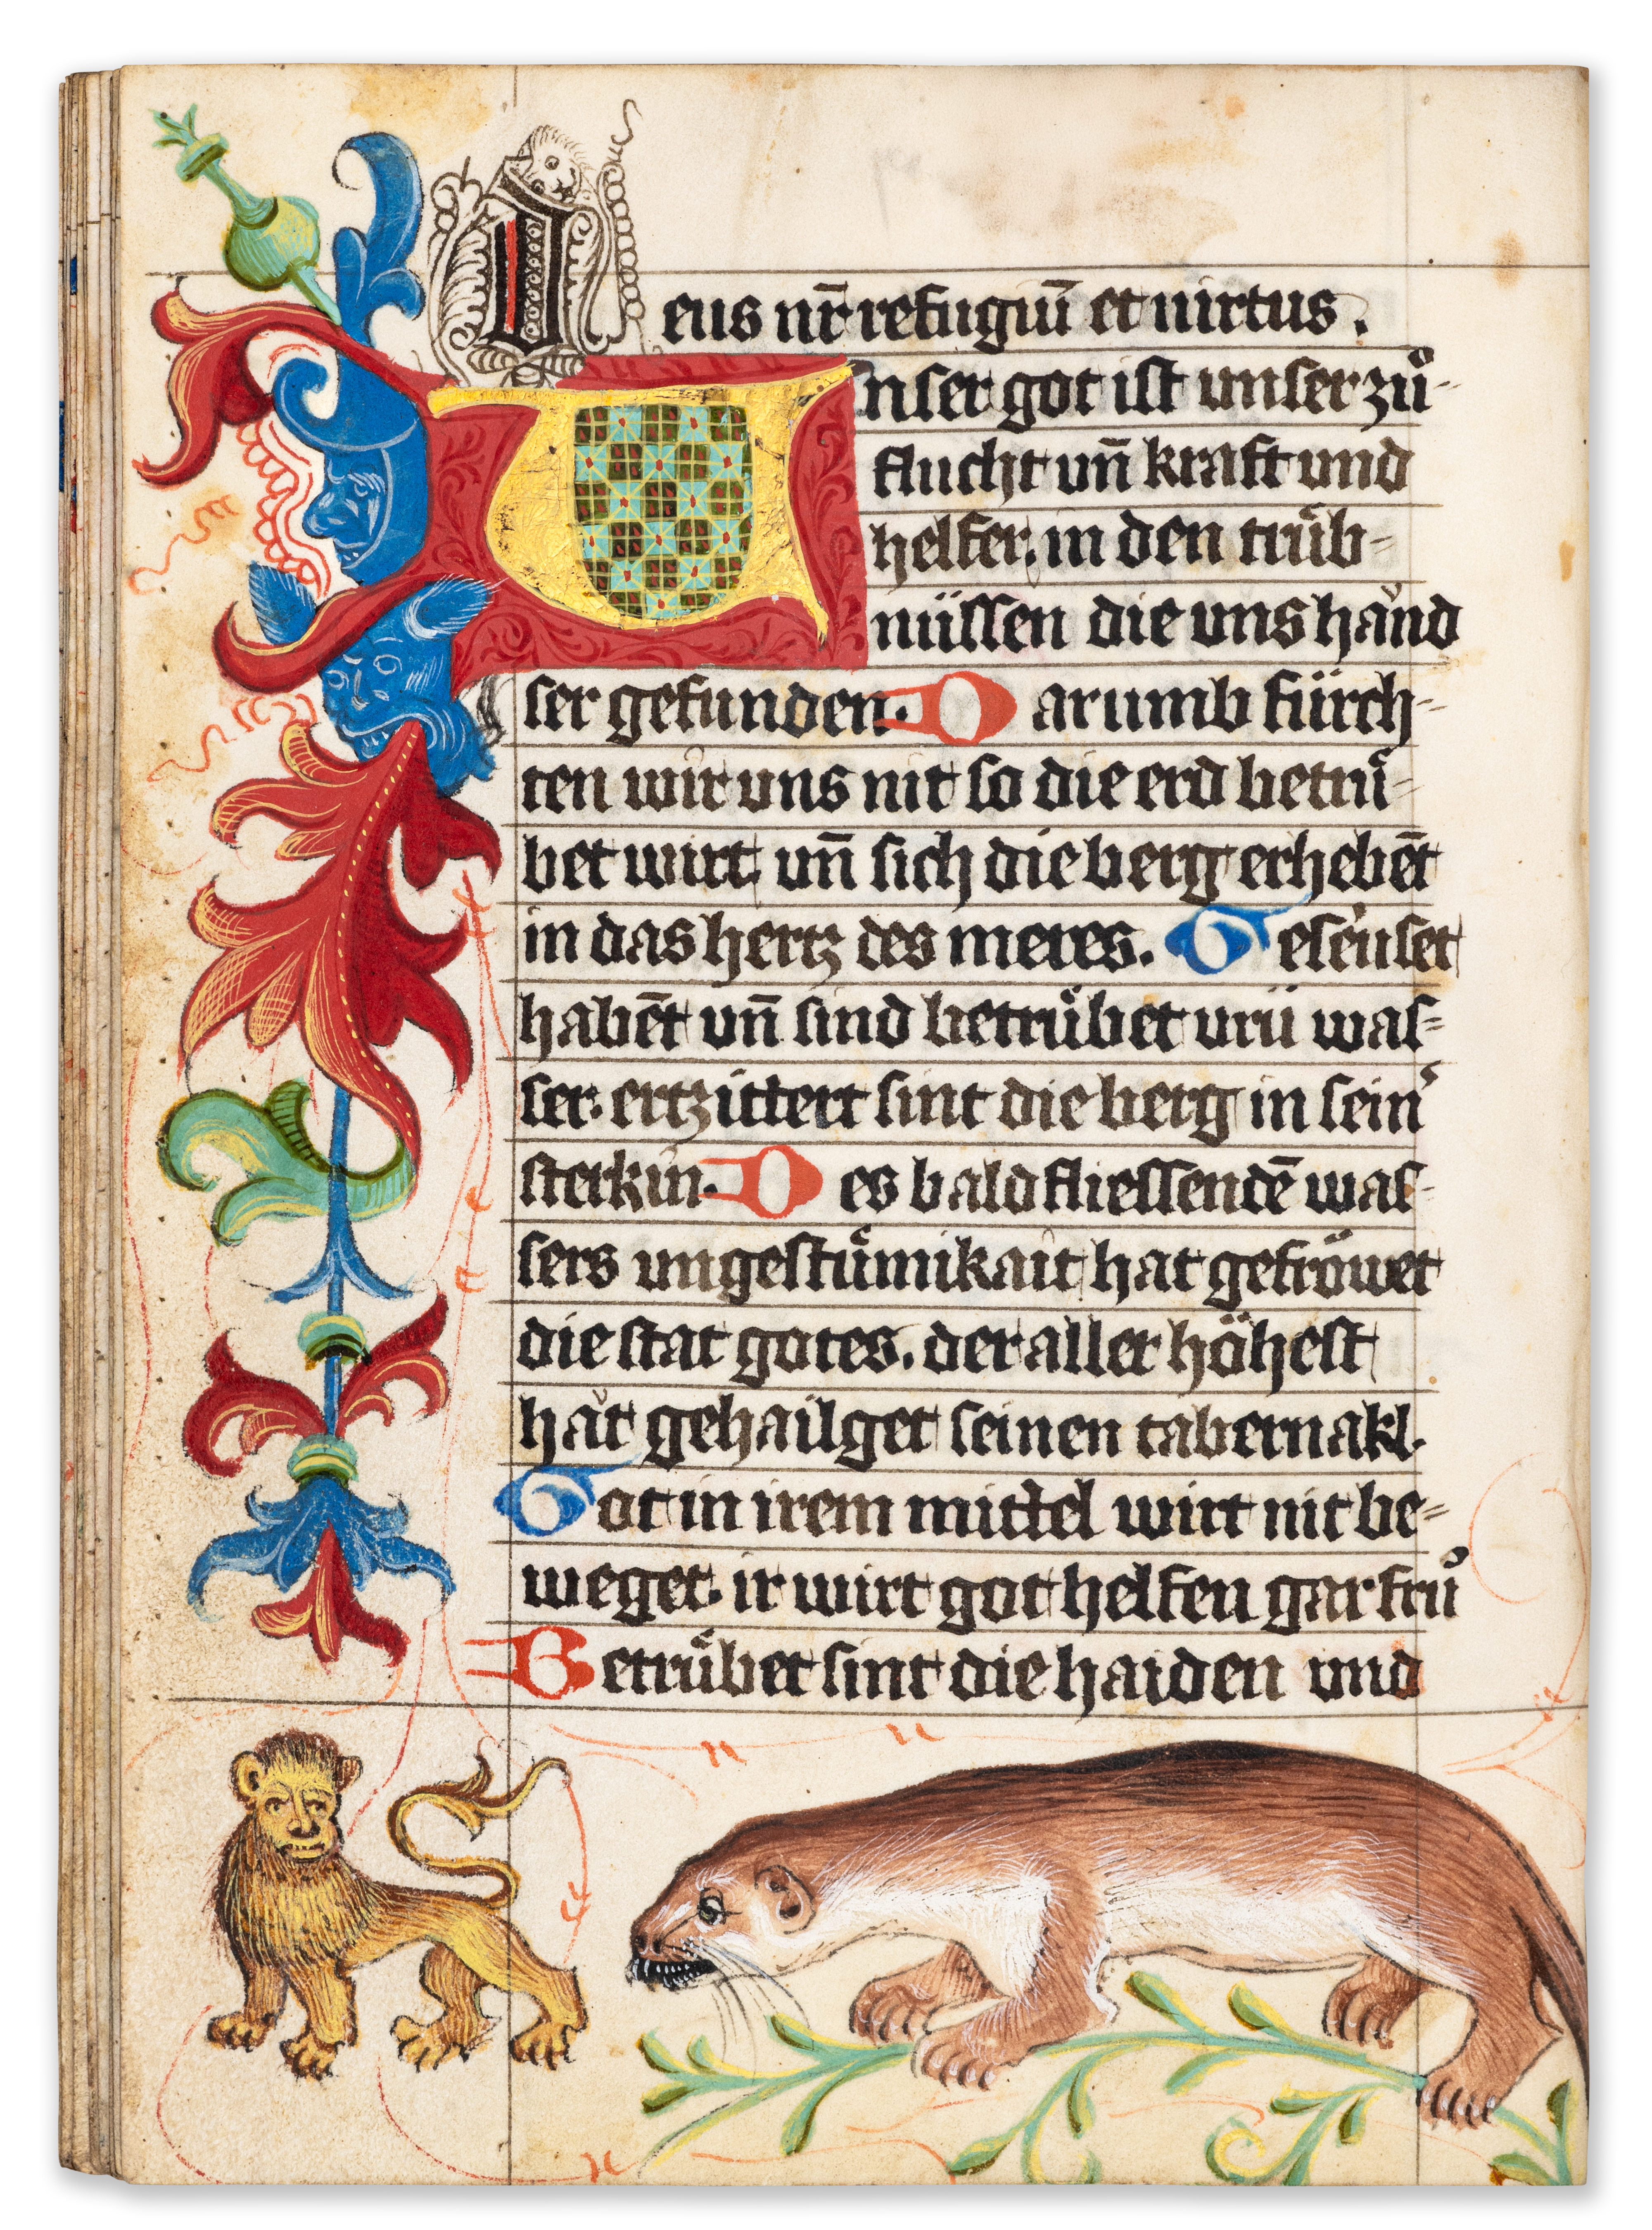 Deus nr̄ refugiū et uirtus.
Unser got ist unser zuͦ-
flucht un̄ kraft und
helfer. in den truͤb-
nüssen die uns hānd
ser gefunden. Darumb fürch-
ten wir uns nit so die erd betruͤ-
bet wirt. un̄ sich die berg erhebēt
in das hertz des meres. Gesēuset
habēt un̄ sind betruͤbet was-
ser. ertzittert sint die berg in sein᷑
sterkin. Des bald fliessendē was-
sers ungestuͤmikait hat gefröwet
die stat gotes. der aller höhest
hāt gehailget seinen tabernakl.
Got in irem mittel wirt nit be-
weget. ir wirt got helfen gar fruͦ
Betruͤbet sint die haiden und